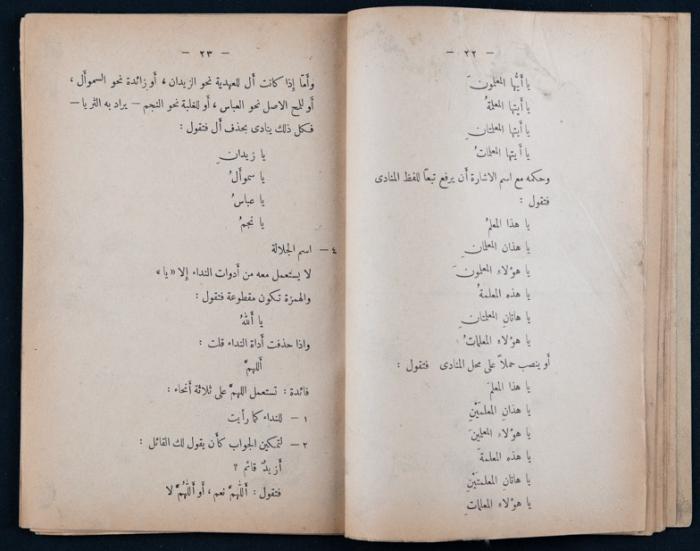 — ٢٢ —
يا أيُّها المعلمونَ
يا أيتها المعلمةُ
يا أيتها المعلمتانِ
يا أيتها المعلماتُ
وحكمه مع اسم الاشارة أن يرفع تبعاً للفظ المنادى
فتقول :
يا هذا المعلمُ
يا هذان المعلمانِ
يا هؤلاء المعلمونَ
يا هذه المعلمةُ
يا هاتانِ المعلمتانِ
يا هؤلاء المعلماتُ
أو ينصب حملاً على محل المنادى فتقول :
يا هذا المعلمَ
يا هذانِ المعلمَيْنِ
يا هؤلاء المعلمينَ
يا هذه المعلمةَ
يا هاتان المعلمتَيْنِ
يا هؤلاء المعلماتِ
— ٢٣ —
وأمّا إذا كانت أل للعهدية نحو الزيدان ، أو زائدة نحو السموأل ،
أو للمح الاصل نحو العباس ، أو للغلبة نحو النجم — يراد به الثريا —
فكل ذلك ينادى بحذف أل فتقول :
يا زيدانِ
يا سموألُ
يا عباسُ
يا نجمُ
٤ — اسم الجلالة
لا يستعمل معه من أدوات النداء إلا «يا»
والهمزة تكون مقطوعة فتقول :
يا أللهُ
واذا حذفت أداة النداء قلت :
أللهمَّ
فائدة : تستعمل اللهمَّ على ثلاثة أنحاء :
١ — للنداء كما رأيت
٢ — لتمكين الجواب كأن يقول لك القائل :
أزيدٌ قائم ؟
فتقول : أللهمَّ نعم ، أو أللهُمَّ لا